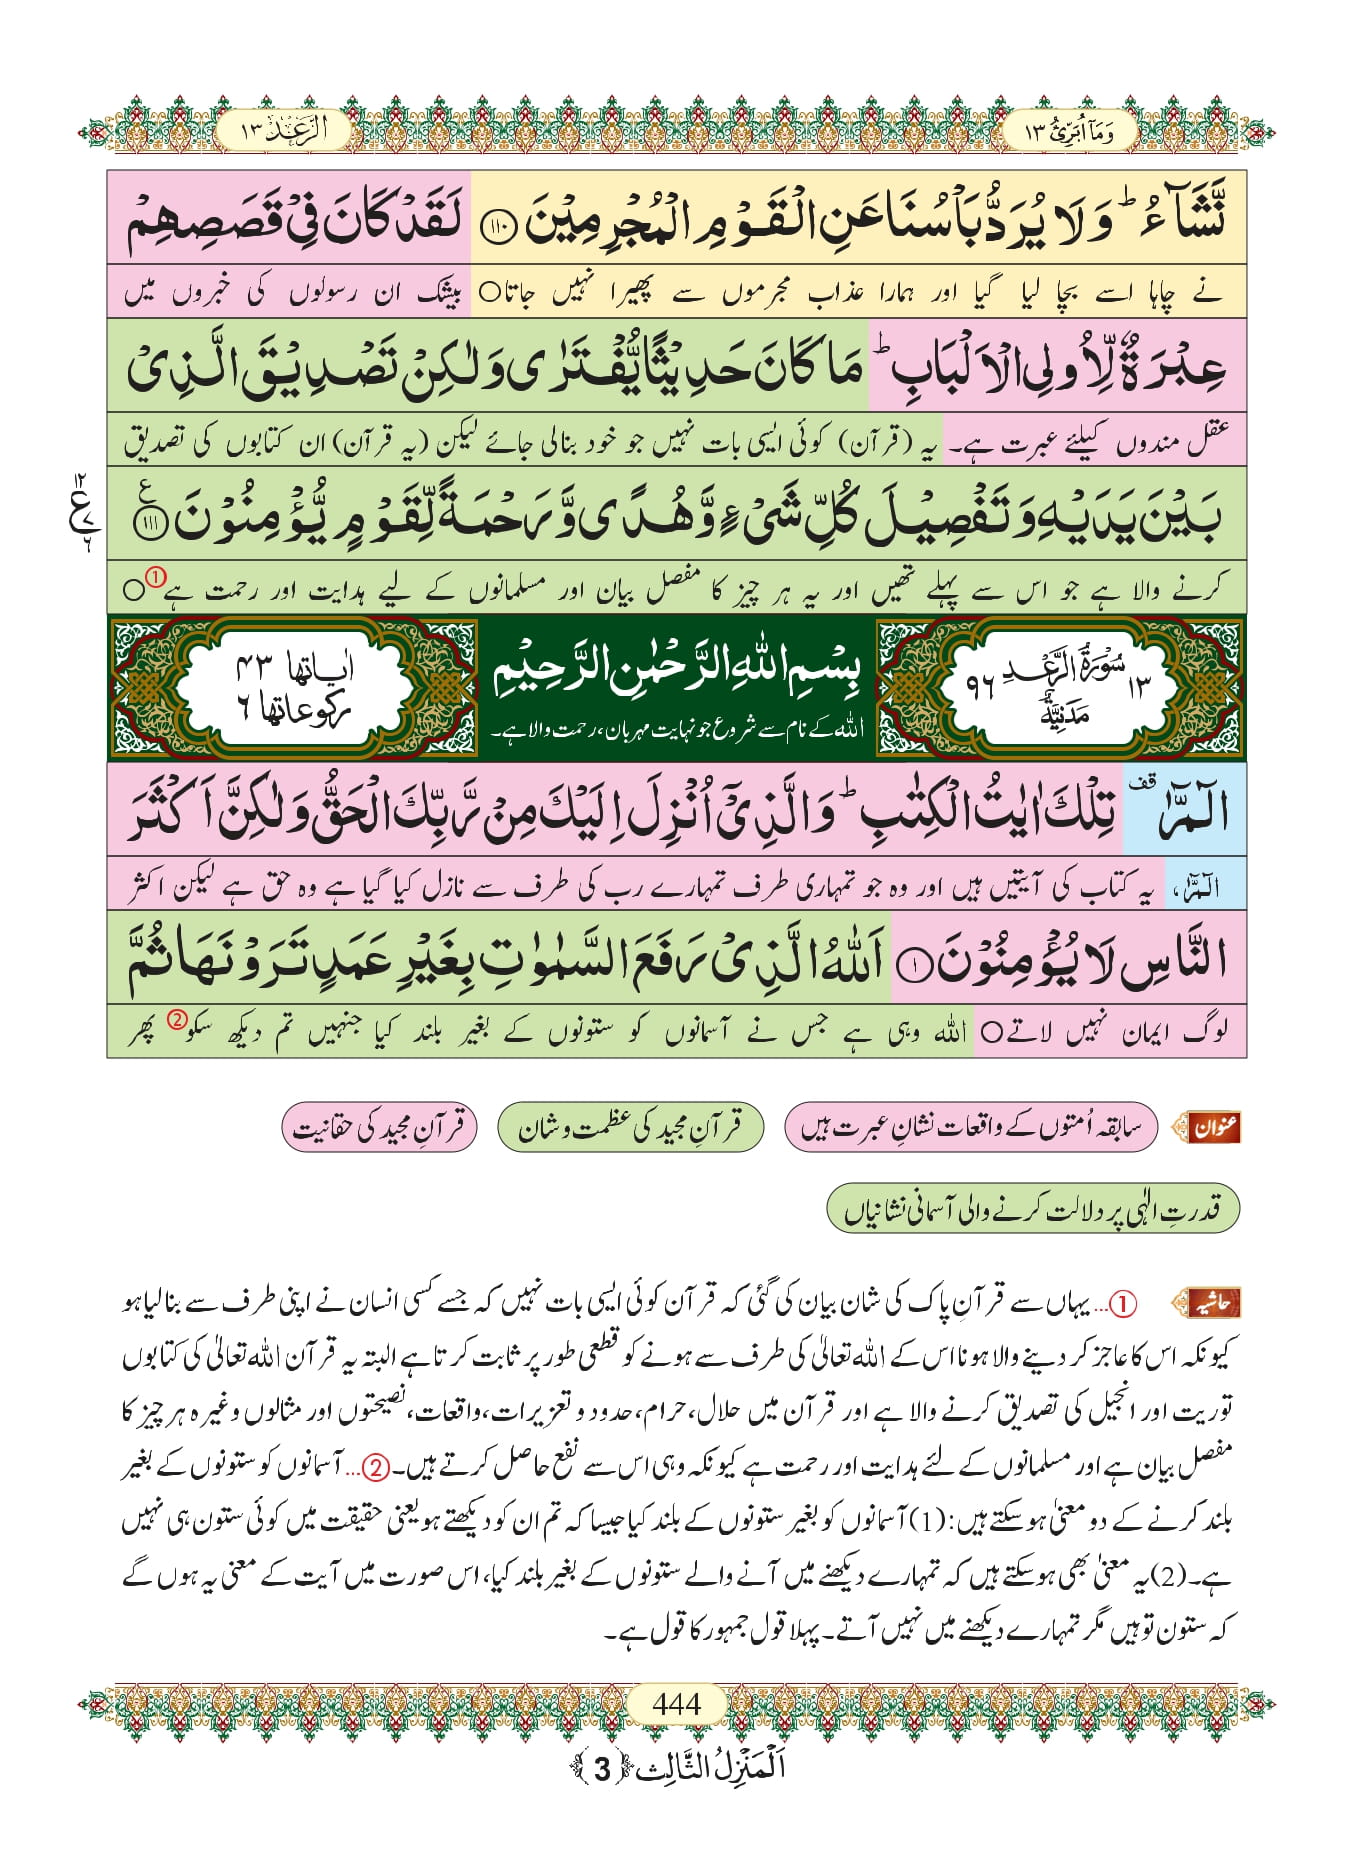 وَمَاۤ اُبَرِّئُ ۱۳
الرَّعْد ۱۳
نَّشَآءُ ؕ وَ لَا یُرَدُّ بَاْسُنَا عَنِ الْقَوْمِ الْمُجْرِمِیْنَ ﴿۱۱۰﴾ لَقَدْ كَانَ فِیْ قَصَصِهِمْ
نے چاہا اسے بچا لیا گیا اور ہمارا عذاب مجرموں سے پھیرا نہیں جاتا○ بیشک ان رسولوں کی خبروں میں
عِبْرَةٌ لِّاُولِی الْاَلْبَابِ ؕ مَا كَانَ حَدِیْثًا یُّفْتَرٰى وَ لٰكِنْ تَصْدِیْقَ الَّذِیْ
عقل مندوں کیلئے عبرت ہے۔ یہ (قرآن) کوئی ایسی بات نہیں جو خود بنالی جائے لیکن (یہ قرآن) ان کتابوں کی تصدیق
بَیْنَ یَدَیْهِ وَ تَفْصِیْلَ كُلِّ شَیْءٍ وَّ هُدًى وَّ رَحْمَةً لِّقَوْمٍ یُّؤْمِنُوْنَ ﴿۱۱۱﴾ ع
۱۲
ع
۷
۶
کرنے والا ہے جو اس سے پہلے تھیں اور یہ ہر چیز کا مفصل بیان اور مسلمانوں کے لیے ہدایت اور رحمت ہے① ○
۱۳ سُوْرَةُ الرَّعْدِ ۹۶
مَدَنِیَّةٌ
بِسْمِ اللّٰهِ الرَّحْمٰنِ الرَّحِیْمِ
اللہ کے نام سے شروع جو نہایت مہربان، رحمت والا ہے۔
اٰیاتها ۴۳
رکوعاتها ۶
الٓمّٓرٰ ࣞقف تِلْكَ اٰیٰتُ الْكِتٰبِ ؕ وَ الَّذِیْۤ اُنْزِلَ اِلَیْكَ مِنْ رَّبِّكَ الْحَقُّ وَ لٰكِنَّ اَكْثَرَ
الٓمّٓرٰ، یہ کتاب کی آیتیں ہیں اور وہ جو تمہاری طرف تمہارے رب کی طرف سے نازل کیا گیا ہے وہ حق ہے لیکن اکثر
النَّاسِ لَا یُؤْمِنُوْنَ ﴿۱﴾ اَللّٰهُ الَّذِیْ رَفَعَ السَّمٰوٰتِ بِغَیْرِ عَمَدٍ تَرَوْنَهَا ثُمَّ
لوگ ایمان نہیں لاتے○ اللہ وہی ہے جس نے آسمانوں کو ستونوں کے بغیر بلند کیا جنہیں تم دیکھ سکو② پھر
عنوان سابقہ اُمتوں کے واقعات نشانِ عبرت ہیں قرآنِ مجید کی عظمت و شان قرآنِ مجید کی حقانیت
قدرتِ الٰہی پر دلالت کرنے والی آسمانی نشانیاں
حاشیہ ①... یہاں سے قرآنِ پاک کی شان بیان کی گئی کہ قرآن کوئی ایسی بات نہیں کہ جسے کسی انسان نے اپنی طرف سے بنالیا ہو
کیونکہ اس کا عاجز کر دینے والا ہونا اس کے اللہ تعالیٰ کی طرف سے ہونے کو قطعی طور پر ثابت کرتا ہے البتہ یہ قرآن اللہ تعالیٰ کی کتابوں
توریت اور انجیل کی تصدیق کرنے والا ہے اور قرآن میں حلال، حرام، حدود و تعزیرات، واقعات، نصیحتوں اور مثالوں وغیرہ ہر چیز کا
مفصل بیان ہے اور مسلمانوں کے لئے ہدایت اور رحمت ہے کیونکہ وہی اس سے نفع حاصل کرتے ہیں۔ ②... آسمانوں کو ستونوں کے بغیر
بلند کرنے کے دو معنیٰ ہوسکتے ہیں: (1) آسمانوں کو بغیر ستونوں کے بلند کیا جیسا کہ تم ان کو دیکھتے ہو یعنی حقیقت میں کوئی ستون ہی نہیں
ہے۔ (2) یہ معنیٰ بھی ہوسکتے ہیں کہ تمہارے دیکھنے میں آنے والے ستونوں کے بغیر بلند کیا، اس صورت میں آیت کے معنی یہ ہوں گے
کہ ستون تو ہیں مگر تمہارے دیکھنے میں نہیں آتے۔ پہلا قول جمہور کا قول ہے۔
444
اَلْمَنْزِلُ الثَّالِث ﴿3﴾